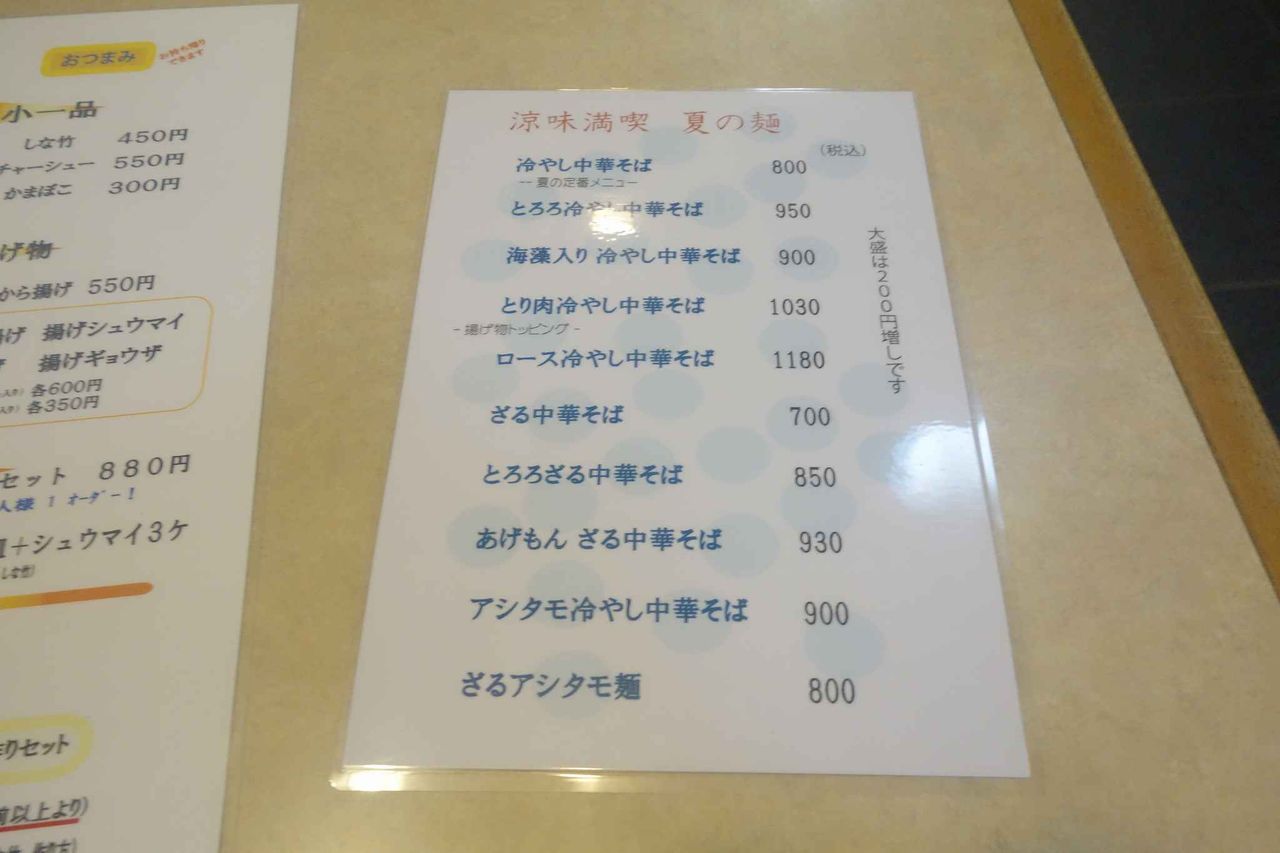 おつまみ
お持ち帰り
できます
小一品
しな竹 450円
チャーシュー 550円
かまぼこ 300円
げ物
から揚げ 550円
げ 揚げシュウマイ
揚げギョウザ
入り) 各600円
入り) 各350円
セット 880円
人様 1 オーダー!
+シュウマイ3ケ
しな竹)
りセット
前以上より)
涼味満喫 夏の麺
(税込)
冷やし中華そば 800
-- 夏の定番メニュー
とろろ冷やし中華そば 950
海藻入り 冷やし中華そば 900
とり肉冷やし中華そば 1030
- 揚げ物トッピング -
ロース冷やし中華そば 1180
ざる中華そば 700
とろろざる中華そば 850
あげもん ざる中華そば 930
アシタモ冷やし中華そば 900
ざるアシタモ麺 800
大盛は200円増しです